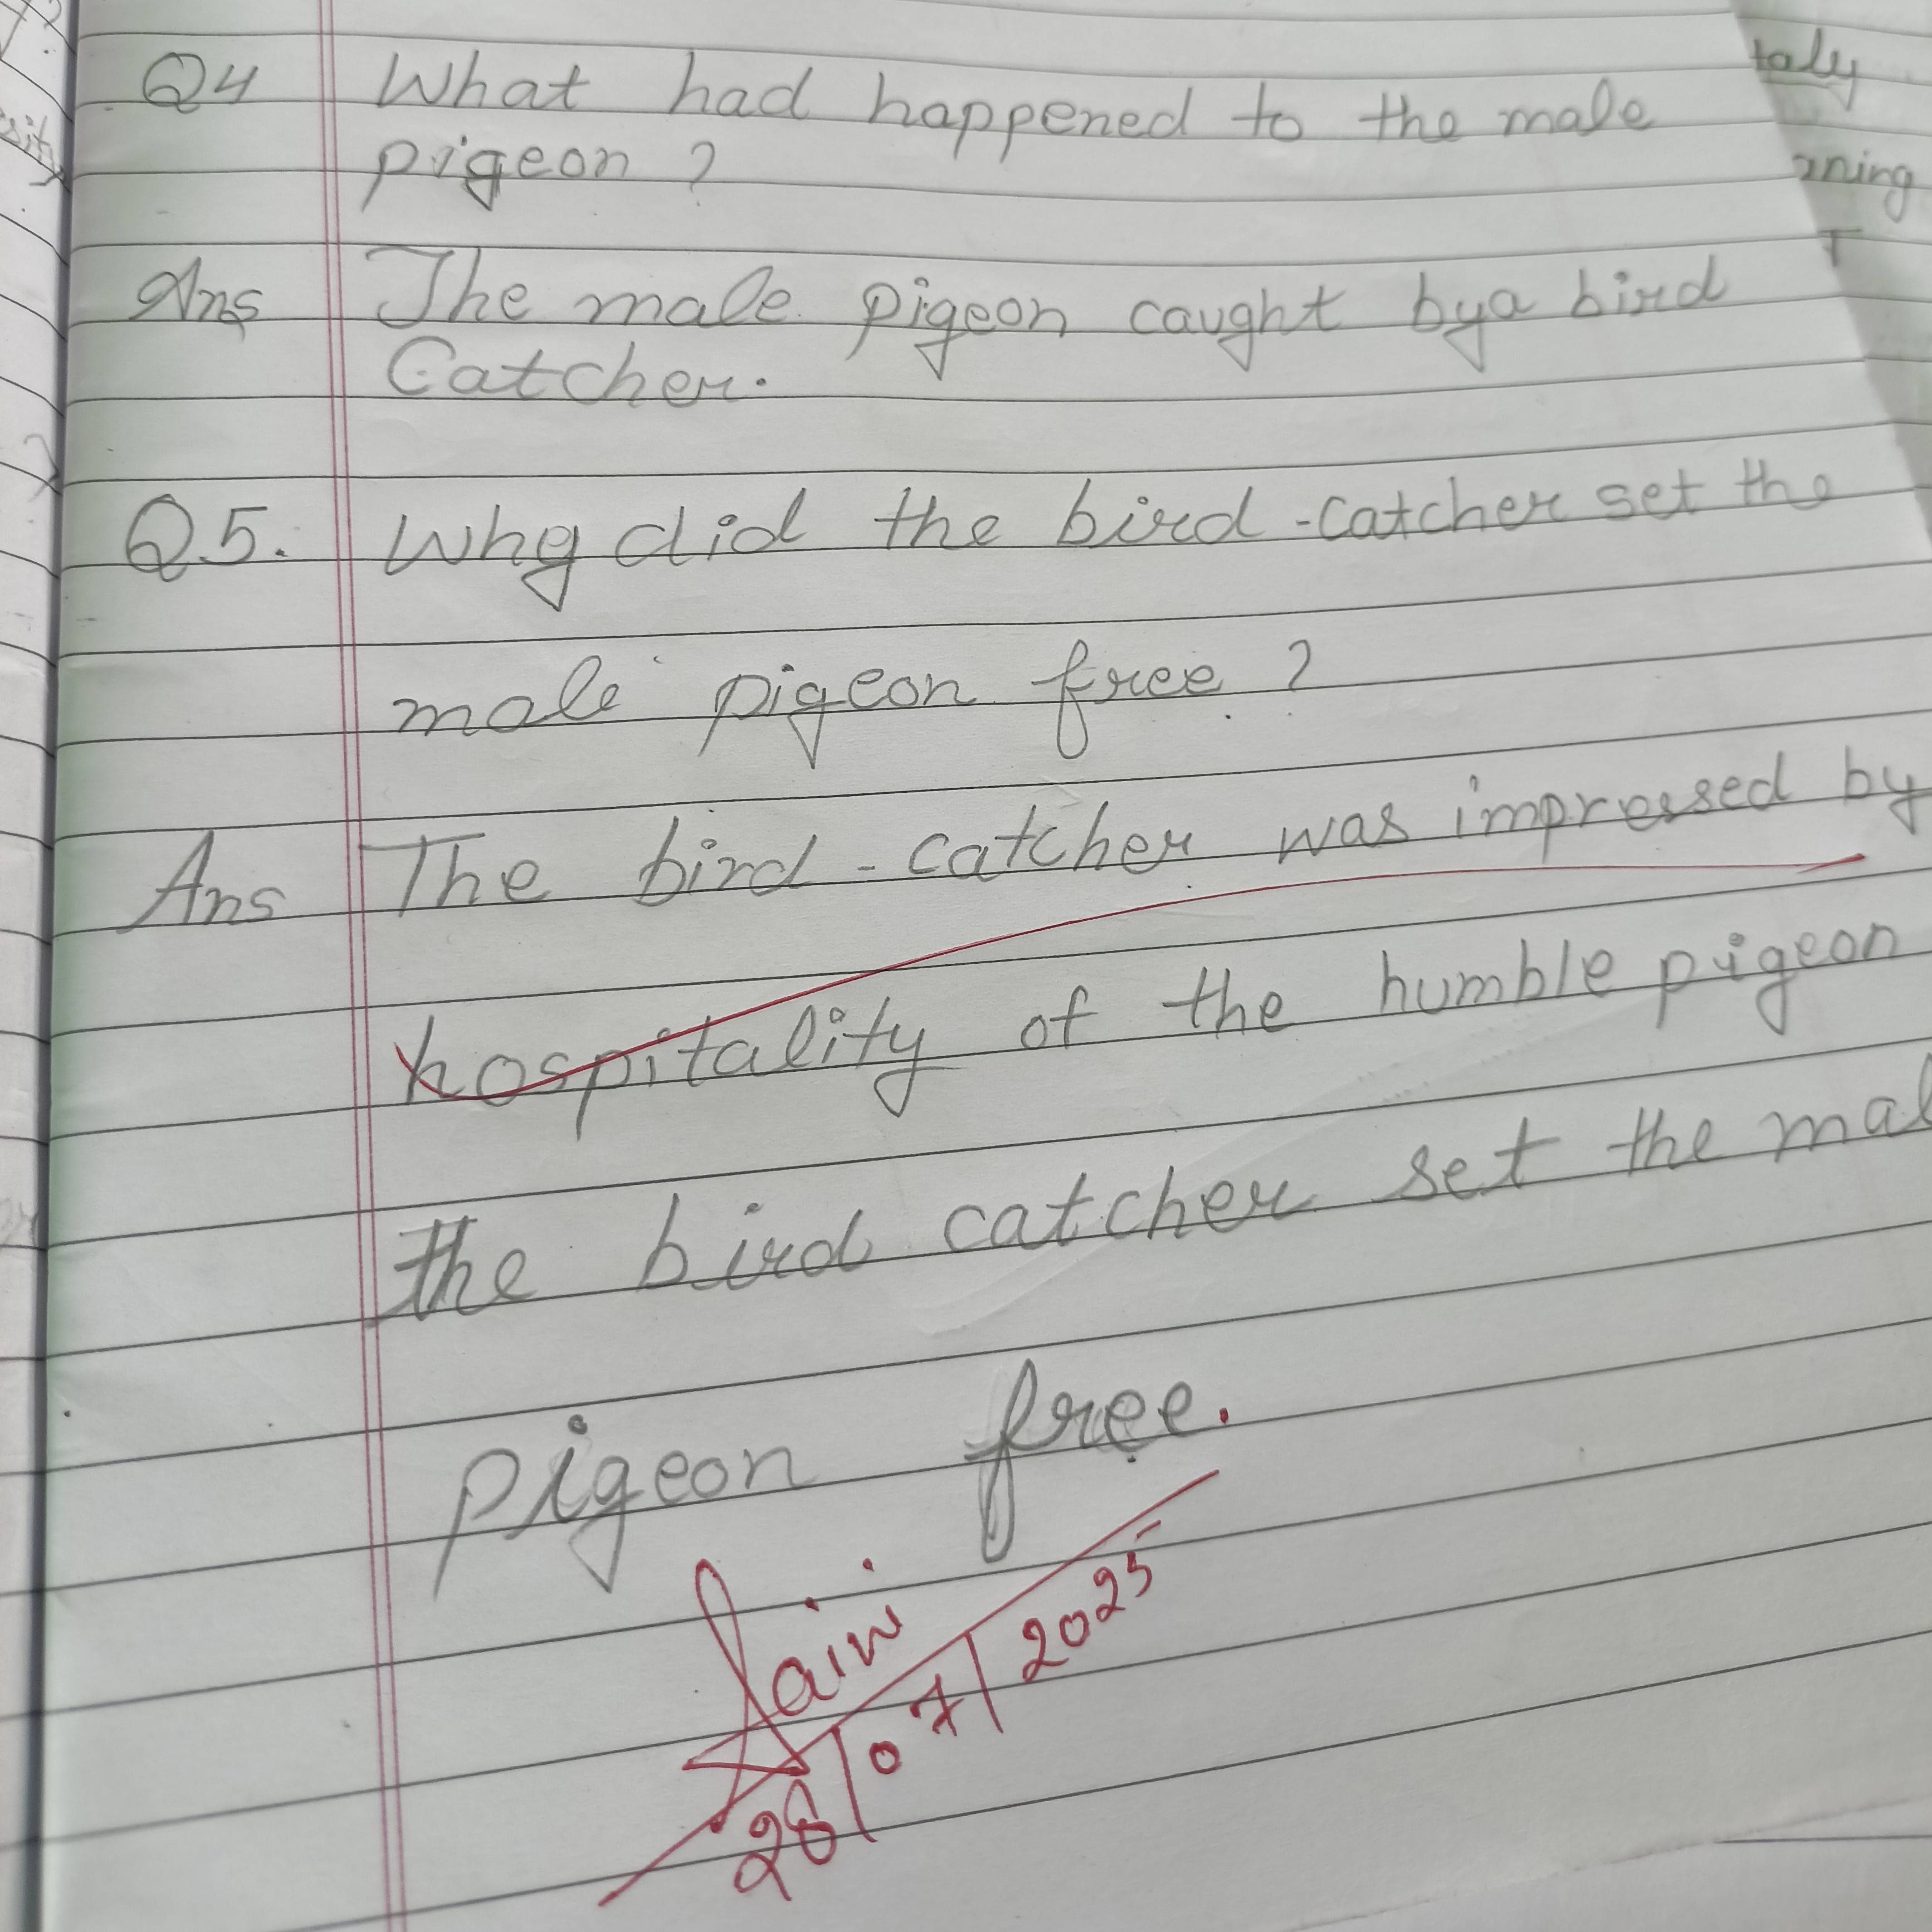 Q4 What had happened to the male
pigeon ?
Ans The male pigeon caught by a bird
Catcher.
Q.5. Why did the bird-catcher set the
male pigeon free ?
Ans The bird-catcher was impressed by
hospitality of the humble pigeon
the bird catcher set the mal
pigeon free.
Saini
28/07/2025
taly
ning
T